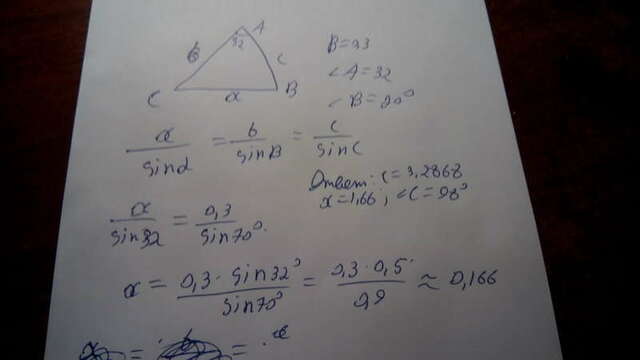 A
b
32
c
C
a
B
B = 0.3
∠A = 32
∠B = 70°
a/sinα = b/sinB = c/sinC
Ответ: c = 3,2868
a = 1,66; ∠C = 98°
a/sin32 = 0,3/sin70°.
a = 0,3 · sin32°/sin70° = 0,3 · 0,5/0,9 ≈ 0,166